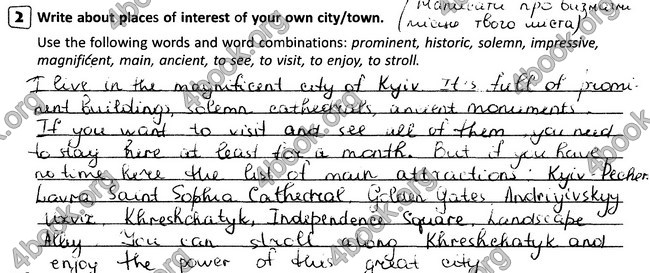 2 Write about places of interest of your own city/town. (Написати про визначні
Use the following words and word combinations: prominent, historic, solemn, impressive, місця твого міста)
magnificent, main, ancient, to see, to visit, to enjoy, to stroll.
I live in the magnificent city of Kyiv. It's full of promi-
nent buildings, solemn cathedrals, ancient monuments.
If you want to visit and see all of them you need
to stay here at least for a month. But if you have
no time here the list of main attractions: Kyiv Pecher.
Lavra, Saint Sophia Cathedral, Golden Gates Andriyivskyy
uzviz, Khreshchatyk, Independence Square, Landscape
Alley You can stroll along Khreshchatyk and
enjoy the power of this great city
4book.org